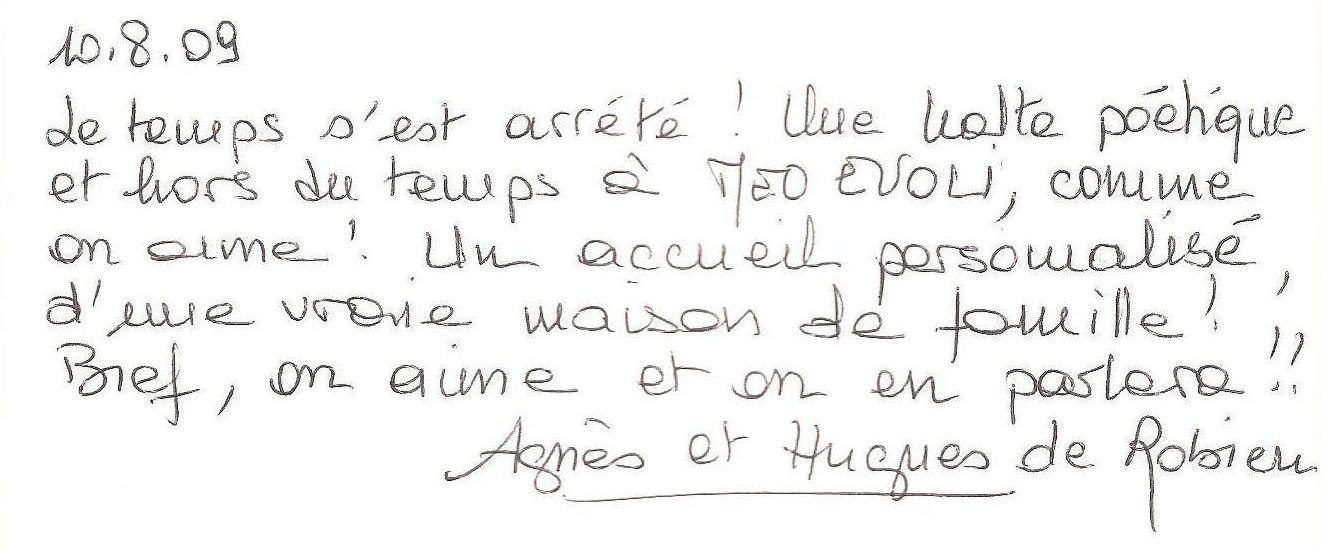 10.8.09
Le temps s'est arrété ! Une halte poétique
et hors du temps à MEO EVOLI, comme
on aime ! Un accueil personnalisé,
d'une vraie maison de famille !
Bref, on aime et on en parlera !!
Agnès et Hugues de Robien